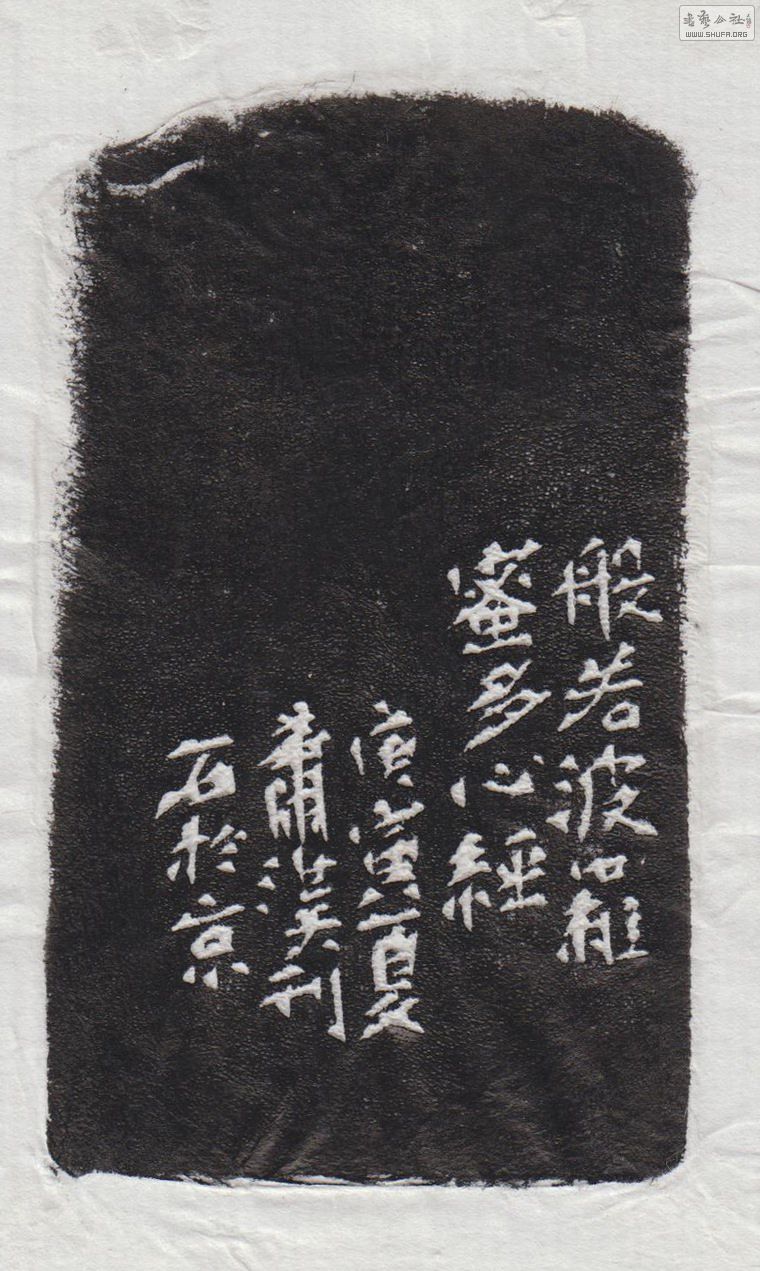 般若波罗
蜜多心經
庚寅夏
蕭汉刊
石於京
書藝公社
WWW.SHUFA.ORG